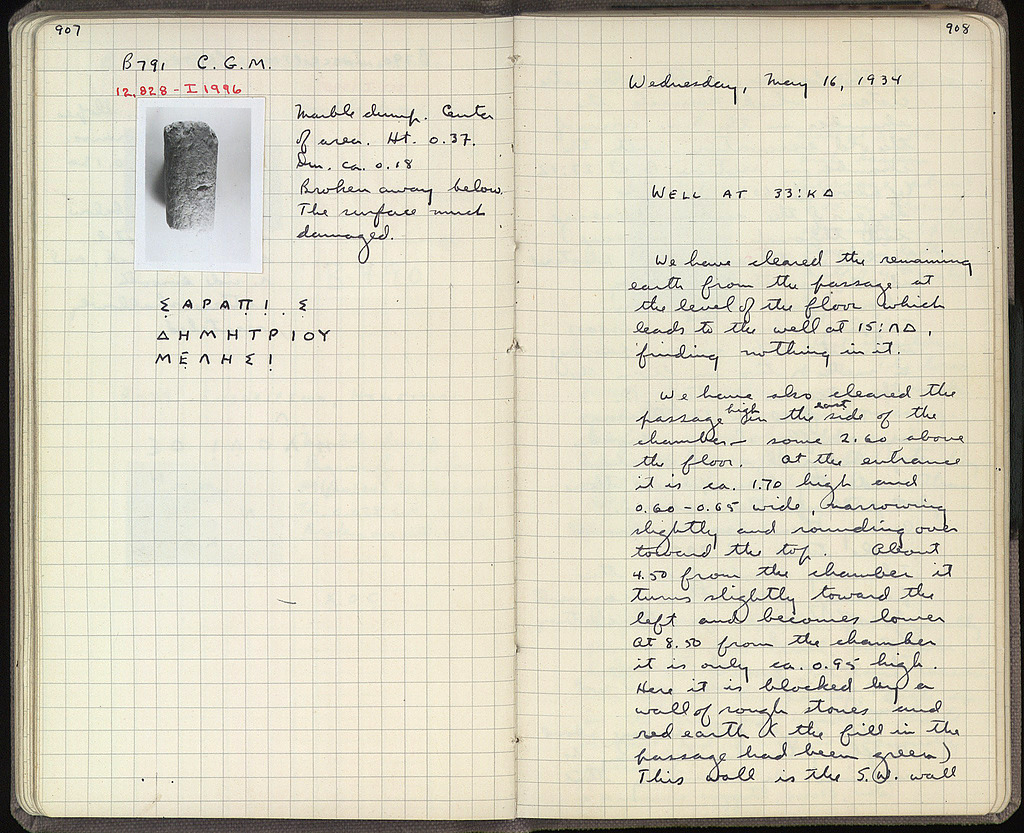 907
B791 C.G.M.
12,828 - I 1996
Marble dump. Center
of area. Ht. 0.37.
Dm. ca. 0.18
Broken away below.
The surface much
damaged.
ΣΑΡΑΠΙ . Σ
ΔΗΜΗΤΡΙΟΥ
ΜΕΛΗΣΙ
908
Wednesday, May 16, 1934
WELL AT 33:ΚΔ
We have cleared the remaining
earth from the passage at
the level of the floor which
leads to the well at 15:ΛΔ,
finding nothing in it.
We have also cleared the
passage high in the east side of the
chamber – some 2.60 above
the floor. At the entrance
it is ca. 1.70 high and
0.60-0.65 wide, narrowing
slightly and rounding over
toward the top. About
4.50 from the chamber it
turns slightly toward the
left and becomes lower
At 8.50 from the chamber
it is only ca. 0.95 high.
Here it is blocked by a
wall of rough stones and
red earth (the fill in the
passage had been green)
This wall is the S.W. wall